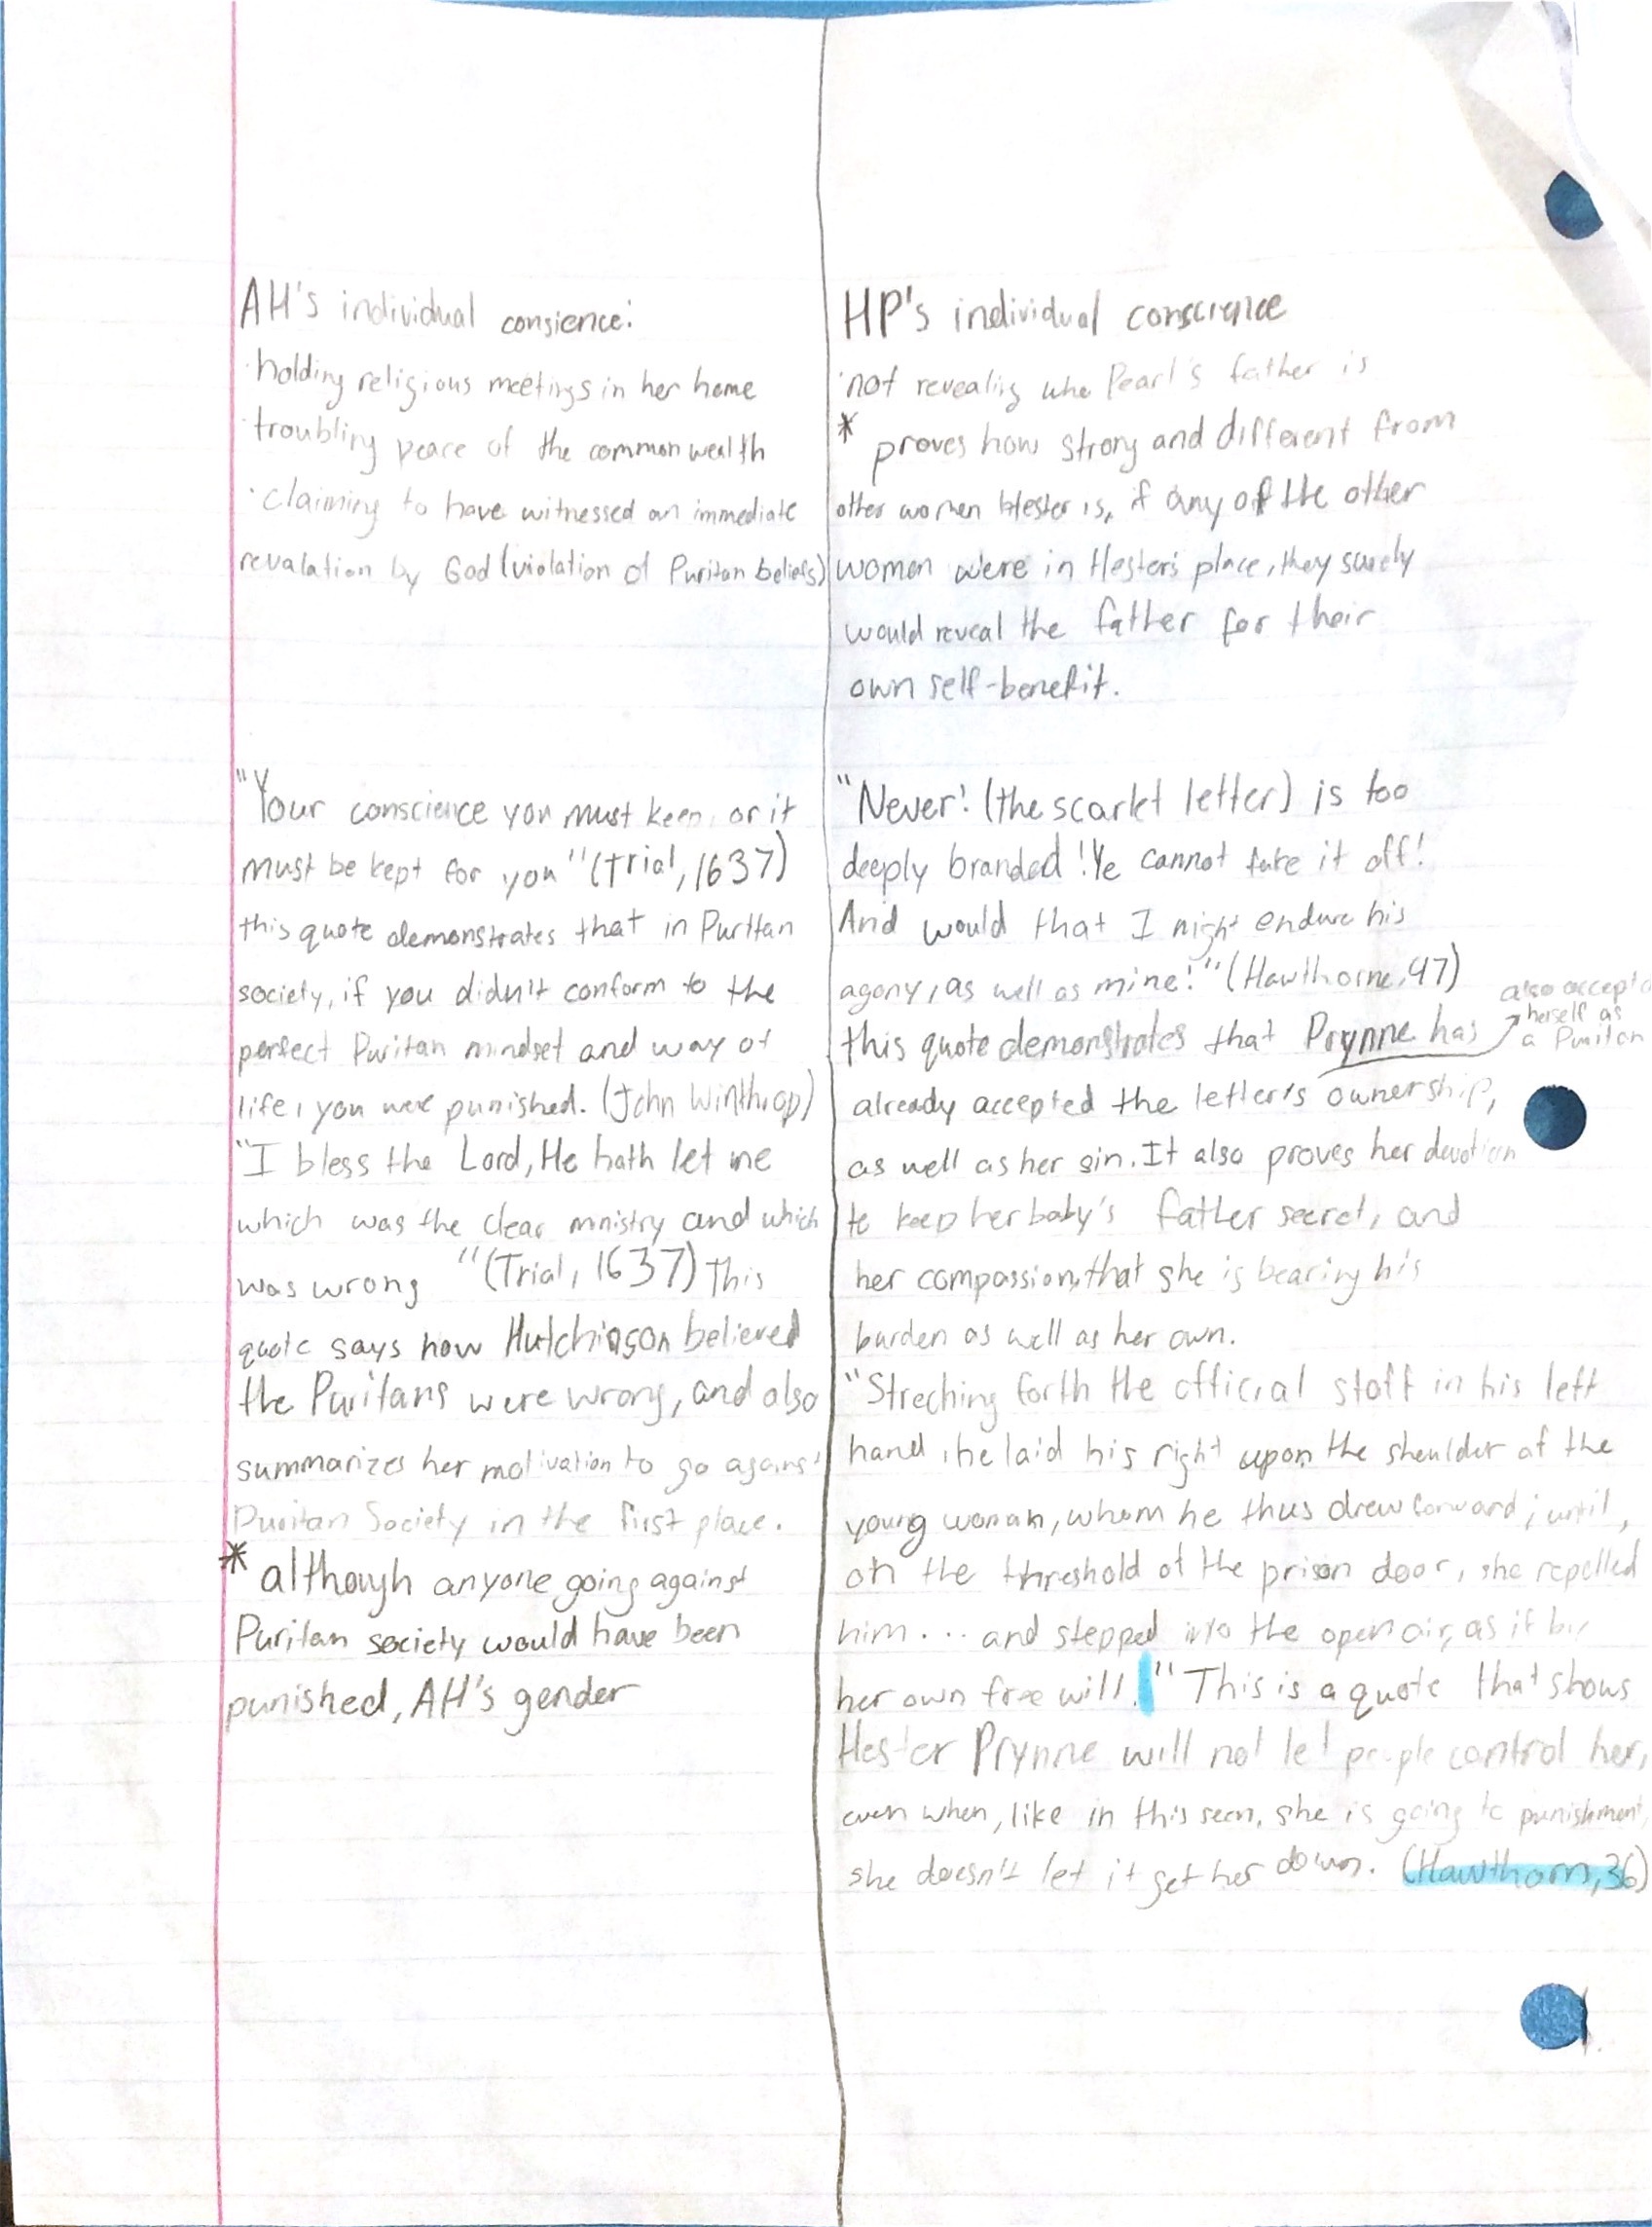 AH's individual consience:
·holding religious meetings in her home
·troubling peace of the common wealth
·claiming to have witnessed an immediate
revalation by God (violation of Puritan beliefs)
"Your conscience you must keep, or it
must be kept for you" (Trial, 1637)
this quote demonstrates that in Puritan
society, if you didn't conform to the
perfect Puritan mindset and way of
life, you were punished. (John Winthrop)
"I bless the Lord, He hath let me
which was the clear ministry and which
was wrong "(Trial, 1637) This
quote says how Hutchinson believed
the Puritans were wrong, and also
summarizes her motivation to go against
Puritan Society in the first place.
* although anyone going against
Puritan society would have been
punished, AH's gender
HP's individual conscience
·not revealing who Pearl's father is
* proves how strong and different from
other women Hester is, if any of the other
women were in Hester's place, they surely
would reveal the father for their
own self-benefit.
"Never! (the scarlet letter) is too
deeply branded! Ye cannot take it off!
And would that I might endure his
agony, as well as mine!" (Hawthorne, 47)
this quote demonstrates that Prynne has
also accepted
herself as
a Puritan
already accepted the letter's ownership,
as well as her sin. It also proves her devotion
to keep her baby's father secret, and
her compassion, that she is bearing his
burden as well as her own.
"Streching forth the official staff in his left
hand, he laid his right upon the shoulder of the
young woman, whom he thus drew forward; until,
on the threshold of the prison door, she repelled
him... and stepped into the open air, as if by
her own free will." This is a quote that shows
Hester Prynne will not let people control her,
even when, like in this seen, she is going to punishment,
she doesn't let it get her down. (Hawthorn, 36)